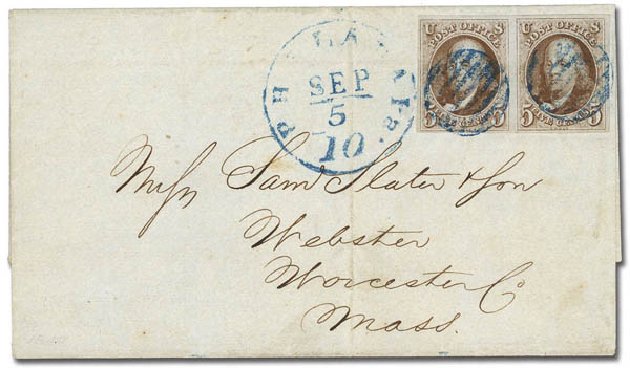 PHILADA Pa.
SEP
5
10
U S
POST OFFICE
FIVE CENTS
5 5
U S
POST OFFICE
FIVE CENTS
5 5
Messs Saml Slater & Son
Webster
Worcester Co
Mass.